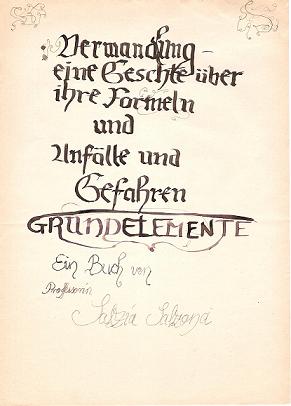 Verwandlung –
eine Geschte über
ihre Formeln
und
Unfälle und
Gefahren
GRUNDELEMENTE
Ein Buch von
Professorin
Salzia Salzona